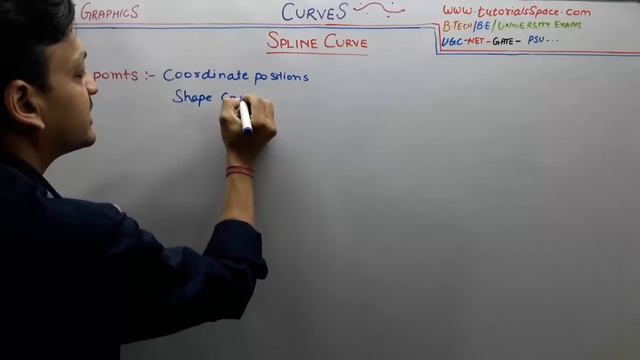 GRAPHICS
CURVES
www.tutorialsSpace.com
B.TECH/BE/UNIVERSITY EXAMS
UGC-NET-GATE- PSU...
SPLINE CURVE
points :- Coordinate positions
Shape